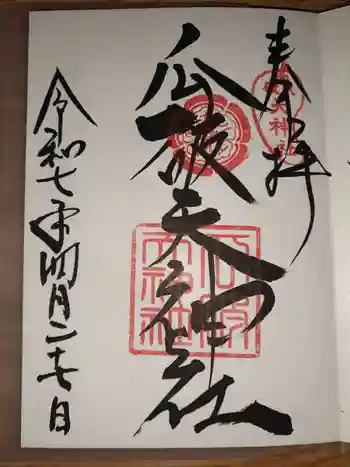 奉拝
瓜破天神社
令和七年四月二十七日